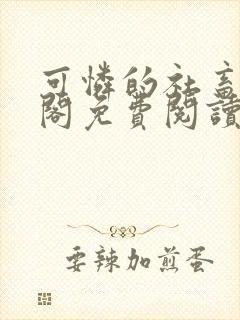 可憐的社畜
閣免費閱讀
要辣加煎蛋